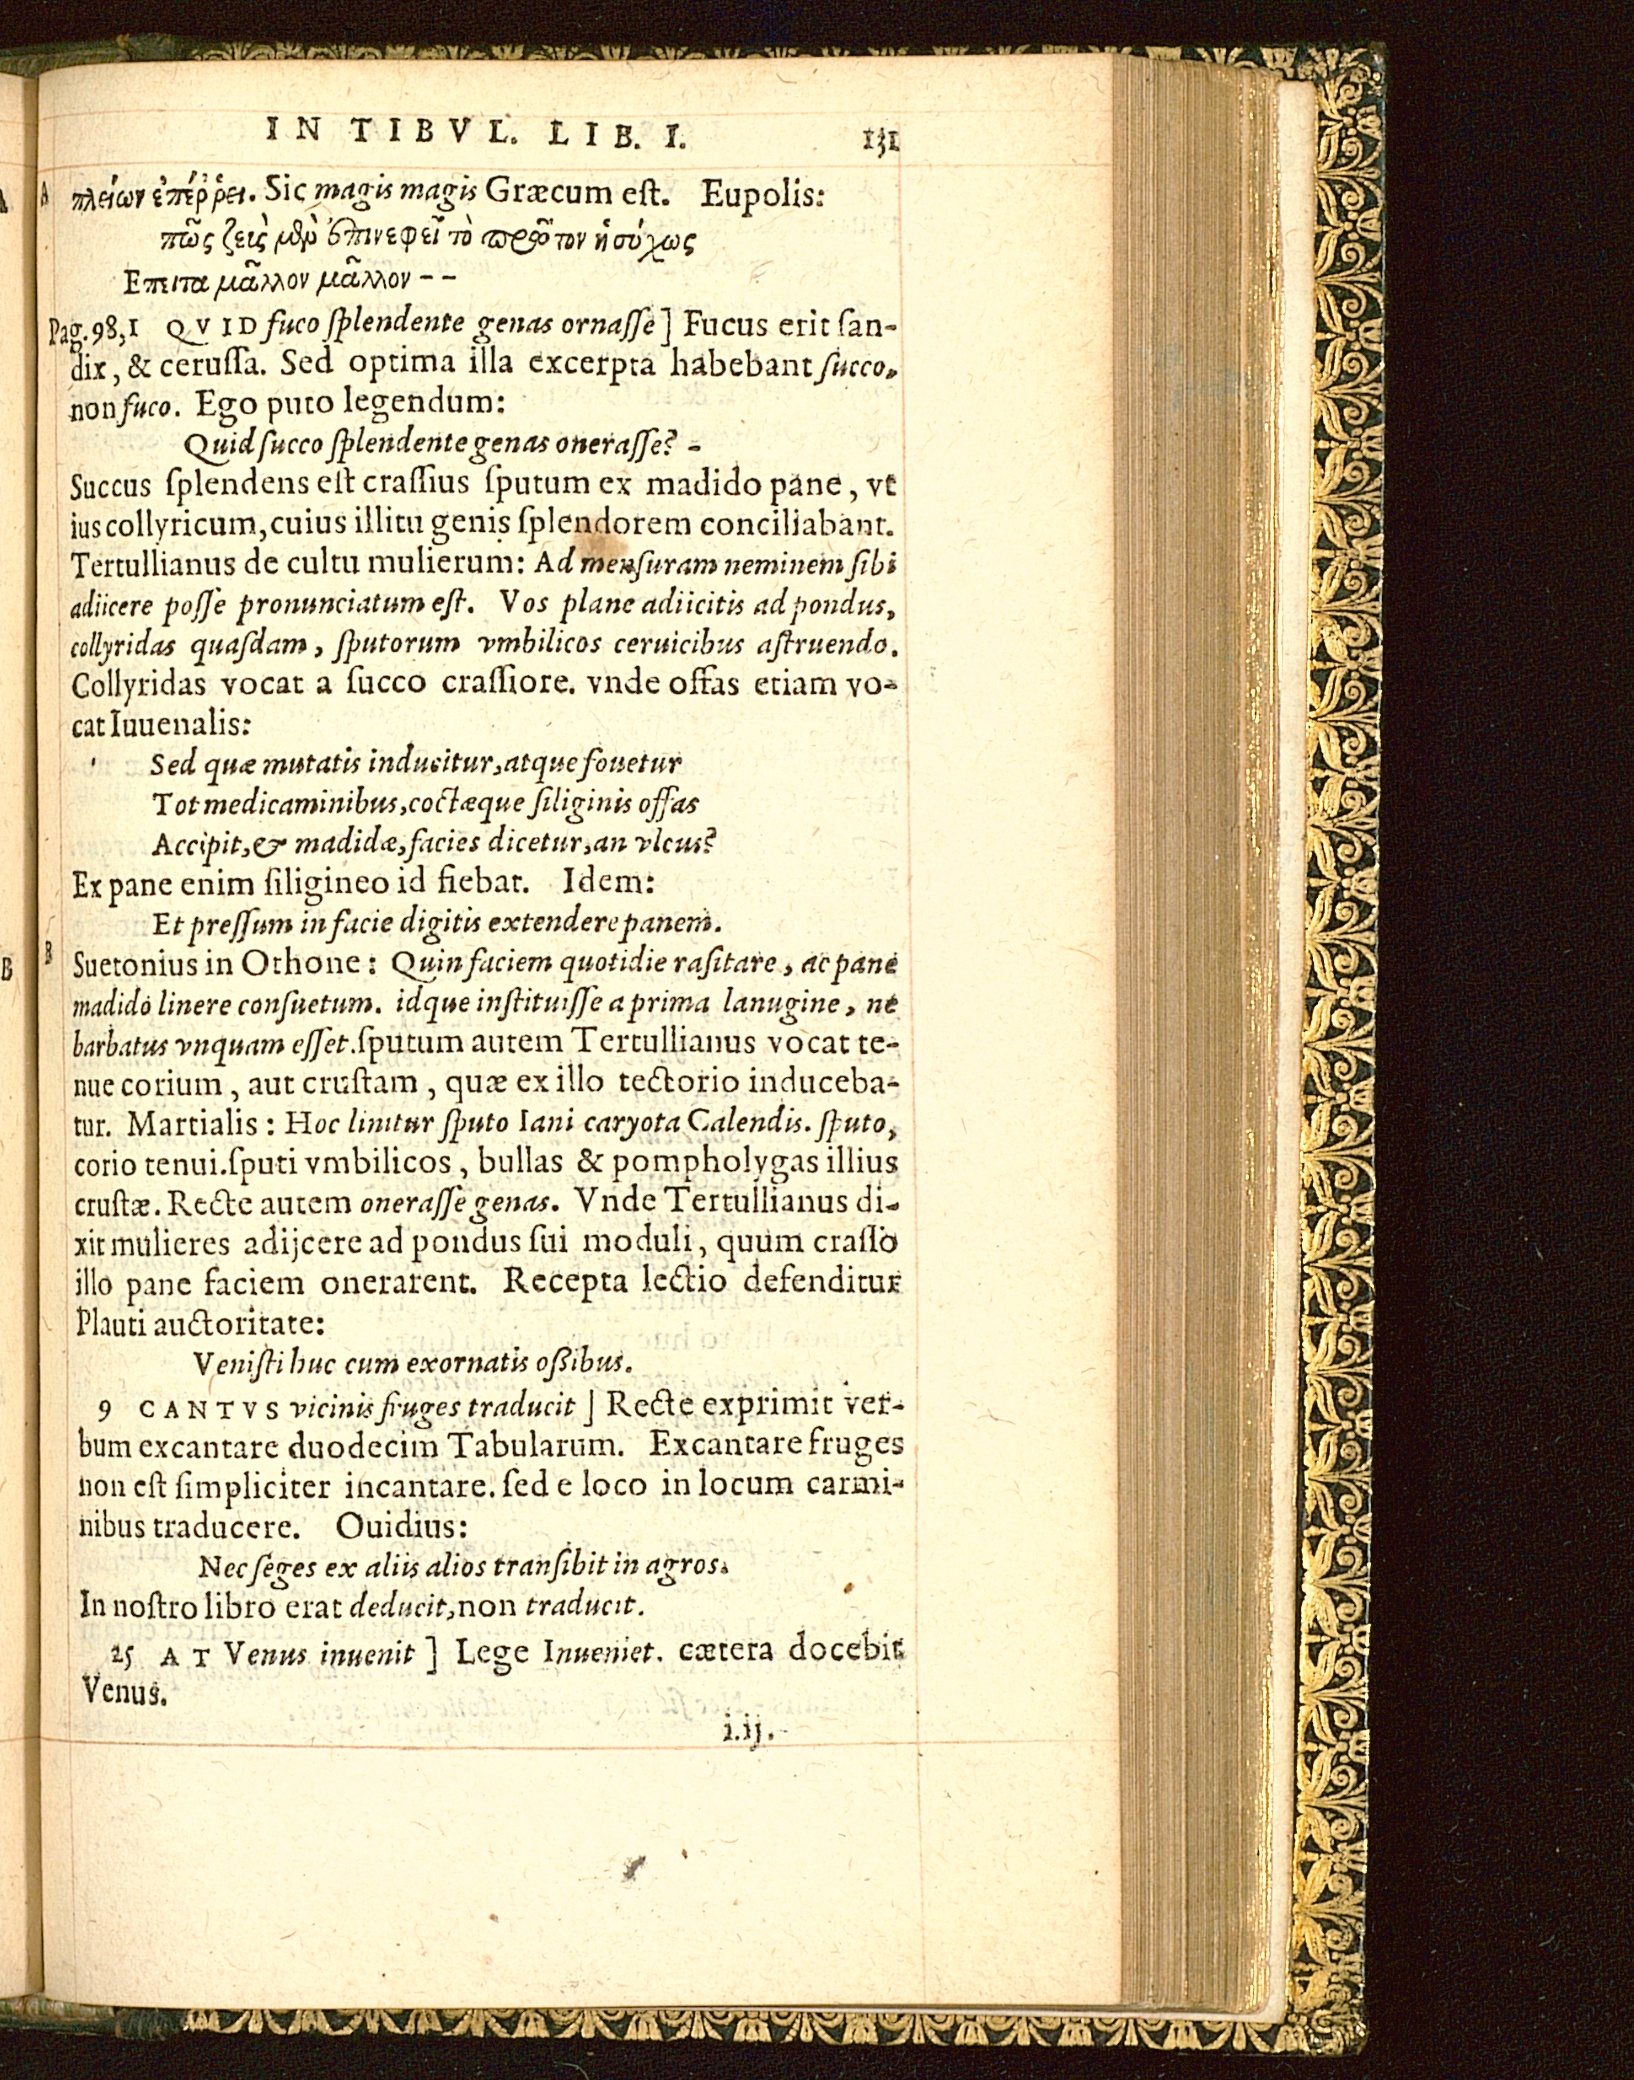 IN TIBVL. LIB. I. 131
A πλείων ἐπέῤῥει. Sic magis magis Græcum est. Eupolis:
πῶς ζεὺς μὲν ἐπινεφεῖ τὸ πρῶτον ἡσύχως
Επειτα μᾶλλον μᾶλλον --
Pag. 98, 1 QVID fuco splendente genas ornasse] Fucus erit san-
dix, & cerussa. Sed optima illa excerpta habebant succo,
non fuco. Ego puto legendum:
Quid succo splendente genas onerasse? -
Succus splendens est crassius sputum ex madido pane, vt
ius collyricum, cuius illitu genis splendorem conciliabant.
Tertullianus de cultu mulierum: Ad mensuram neminem sibi
adiicere posse pronunciatum est. Vos plane adiicitis ad pondus,
collyridas quasdam, sputorum vmbilicos ceruicibus astruendo.
Collyridas vocat a succo crassiore. vnde offas etiam vo-
cat Iuuenalis:
Sed quæ mutatis inducitur, atque fouetur
Tot medicaminibus, coctæque siliginis offas
Accipit, & madidæ, facies dicetur, an vlcus?
Ex pane enim siligineo id fiebat. Idem:
Et pressum in facie digitis extendere panem.
B Suetonius in Othone: Quin faciem quotidie rasitare, ac pane
madido linere consuetum. idque instituisse a prima lanugine, ne
barbatus vnquam esset. sputum autem Tertullianus vocat te-
nue corium, aut crustam, quæ ex illo tectorio induceba-
tur. Martialis: Hoc linitur sputo Iani caryota Calendis. sputo,
corio tenui. sputi vmbilicos, bullas & pompholygas illius
crustæ. Recte autem onerasse genas. Vnde Tertullianus di-
xit mulieres adijcere ad pondus sui moduli, quum crasso
illo pane faciem onerarent. Recepta lectio defenditur
Plauti auctoritate:
Venisti huc cum exornatis ossibus.
9 CANTVS vicinis fruges traducit] Recte exprimit ver-
bum excantare duodecim Tabularum. Excantare fruges
non est simpliciter incantare. sed e loco in locum carmi-
nibus traducere. Ouidius:
Nec seges ex aliis alios transibit in agros.
In nostro libro erat deducit, non traducit.
25 AT Venus inuenit] Lege Inueniet. cætera docebit
Venus.
i.ij.